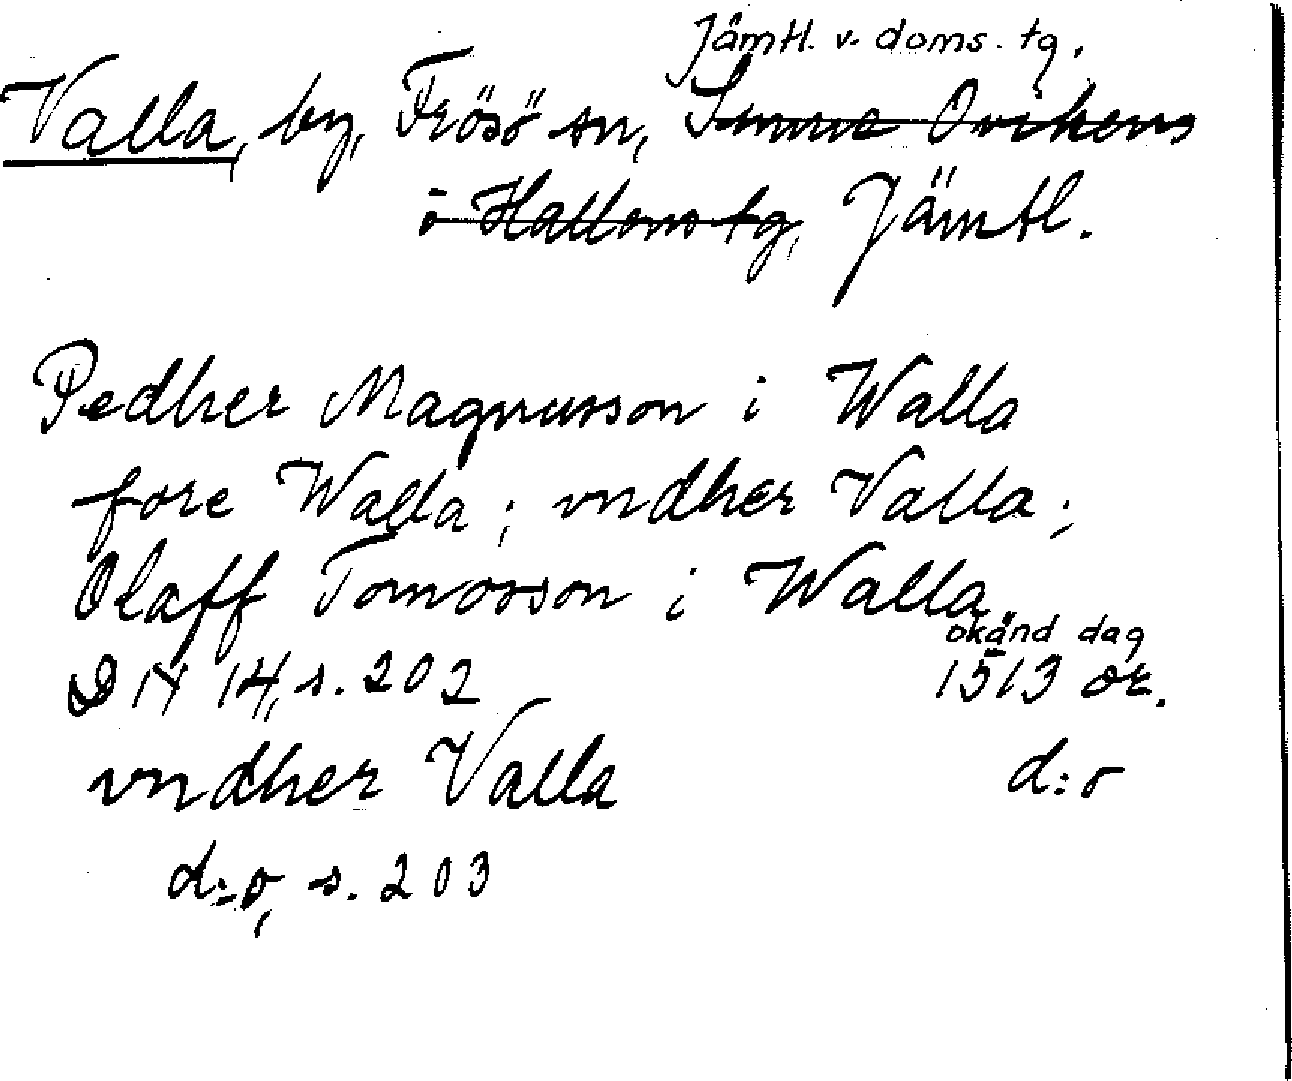 Jämtl. v. doms. tg.
Valla, by, Frösö sn, Sunne Ovikens
o Hallens tg, Jämtl.
Pedher Magnusson i Walla
fore Walla; vndher Valla;
Olaff Tomosson i Walla.
okänd dag
D IX 14, s. 202 1513 or.
vndher Valla d:o
d:o, s. 203